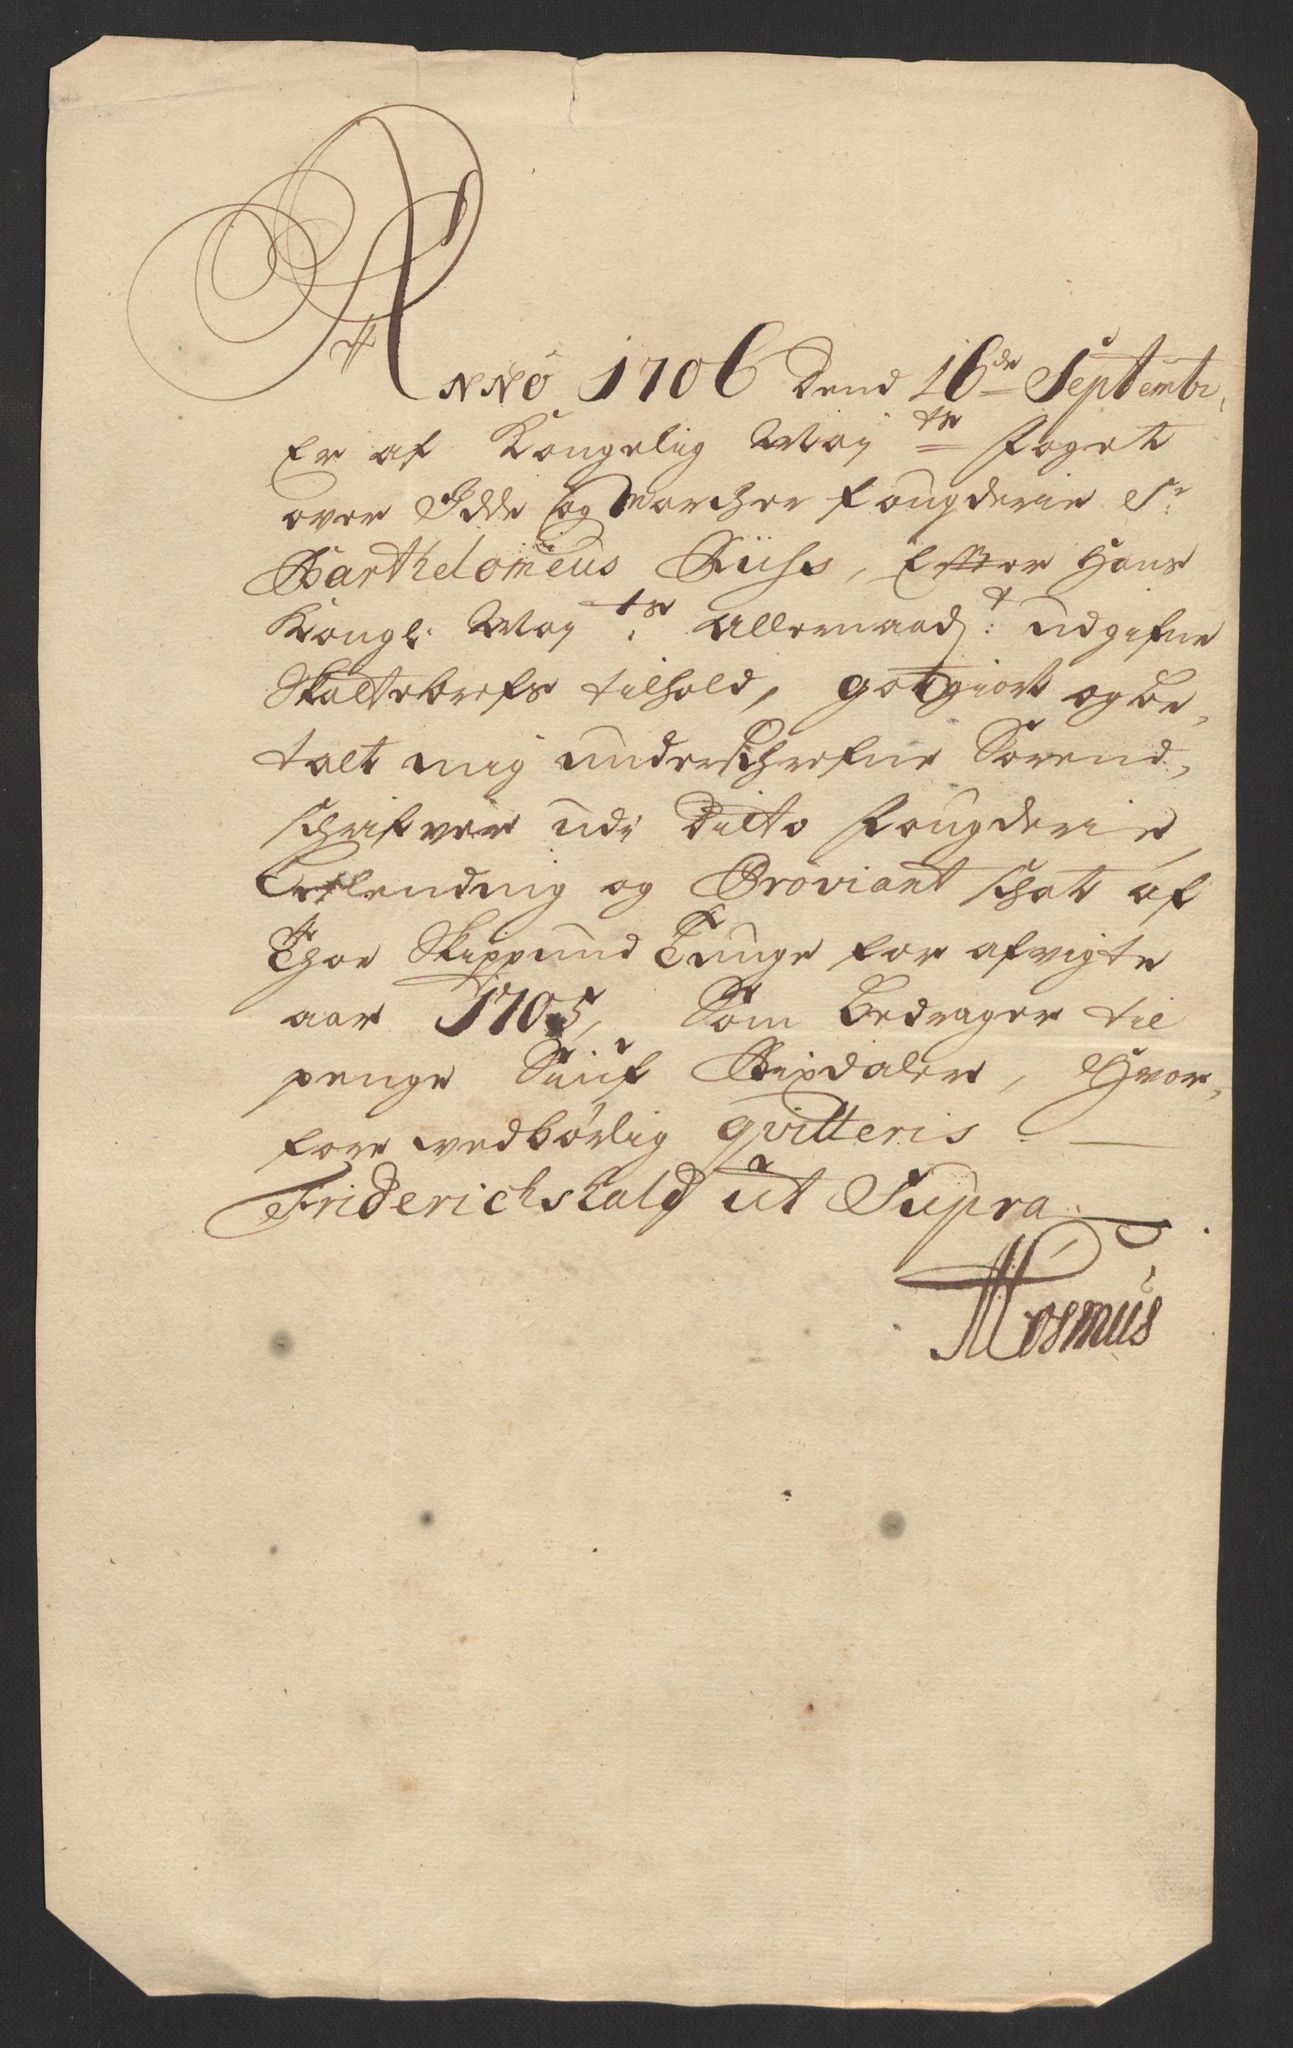 Anno 1706 dend 16de Septembr,
Er af Kongelig May:ts foget
over Idde og Marcher fougderie Sr
Barthelomeus Rühs, Efter Hans
Kongl: May:ts allernaad:t udgifne
Skattebrefs tilhold, gotgiort og be„
talt mig underschrefne Sorend„
schrifver udi ditto fougderie,
og Proviant schat af
Thoe Skippund Tunge for afvigte
aar 1705, Som bedrager til
penge Rixdaler, Hvor„
fore vedbørlig qvitteris
Friderichshald ut Supra.
Mosmus